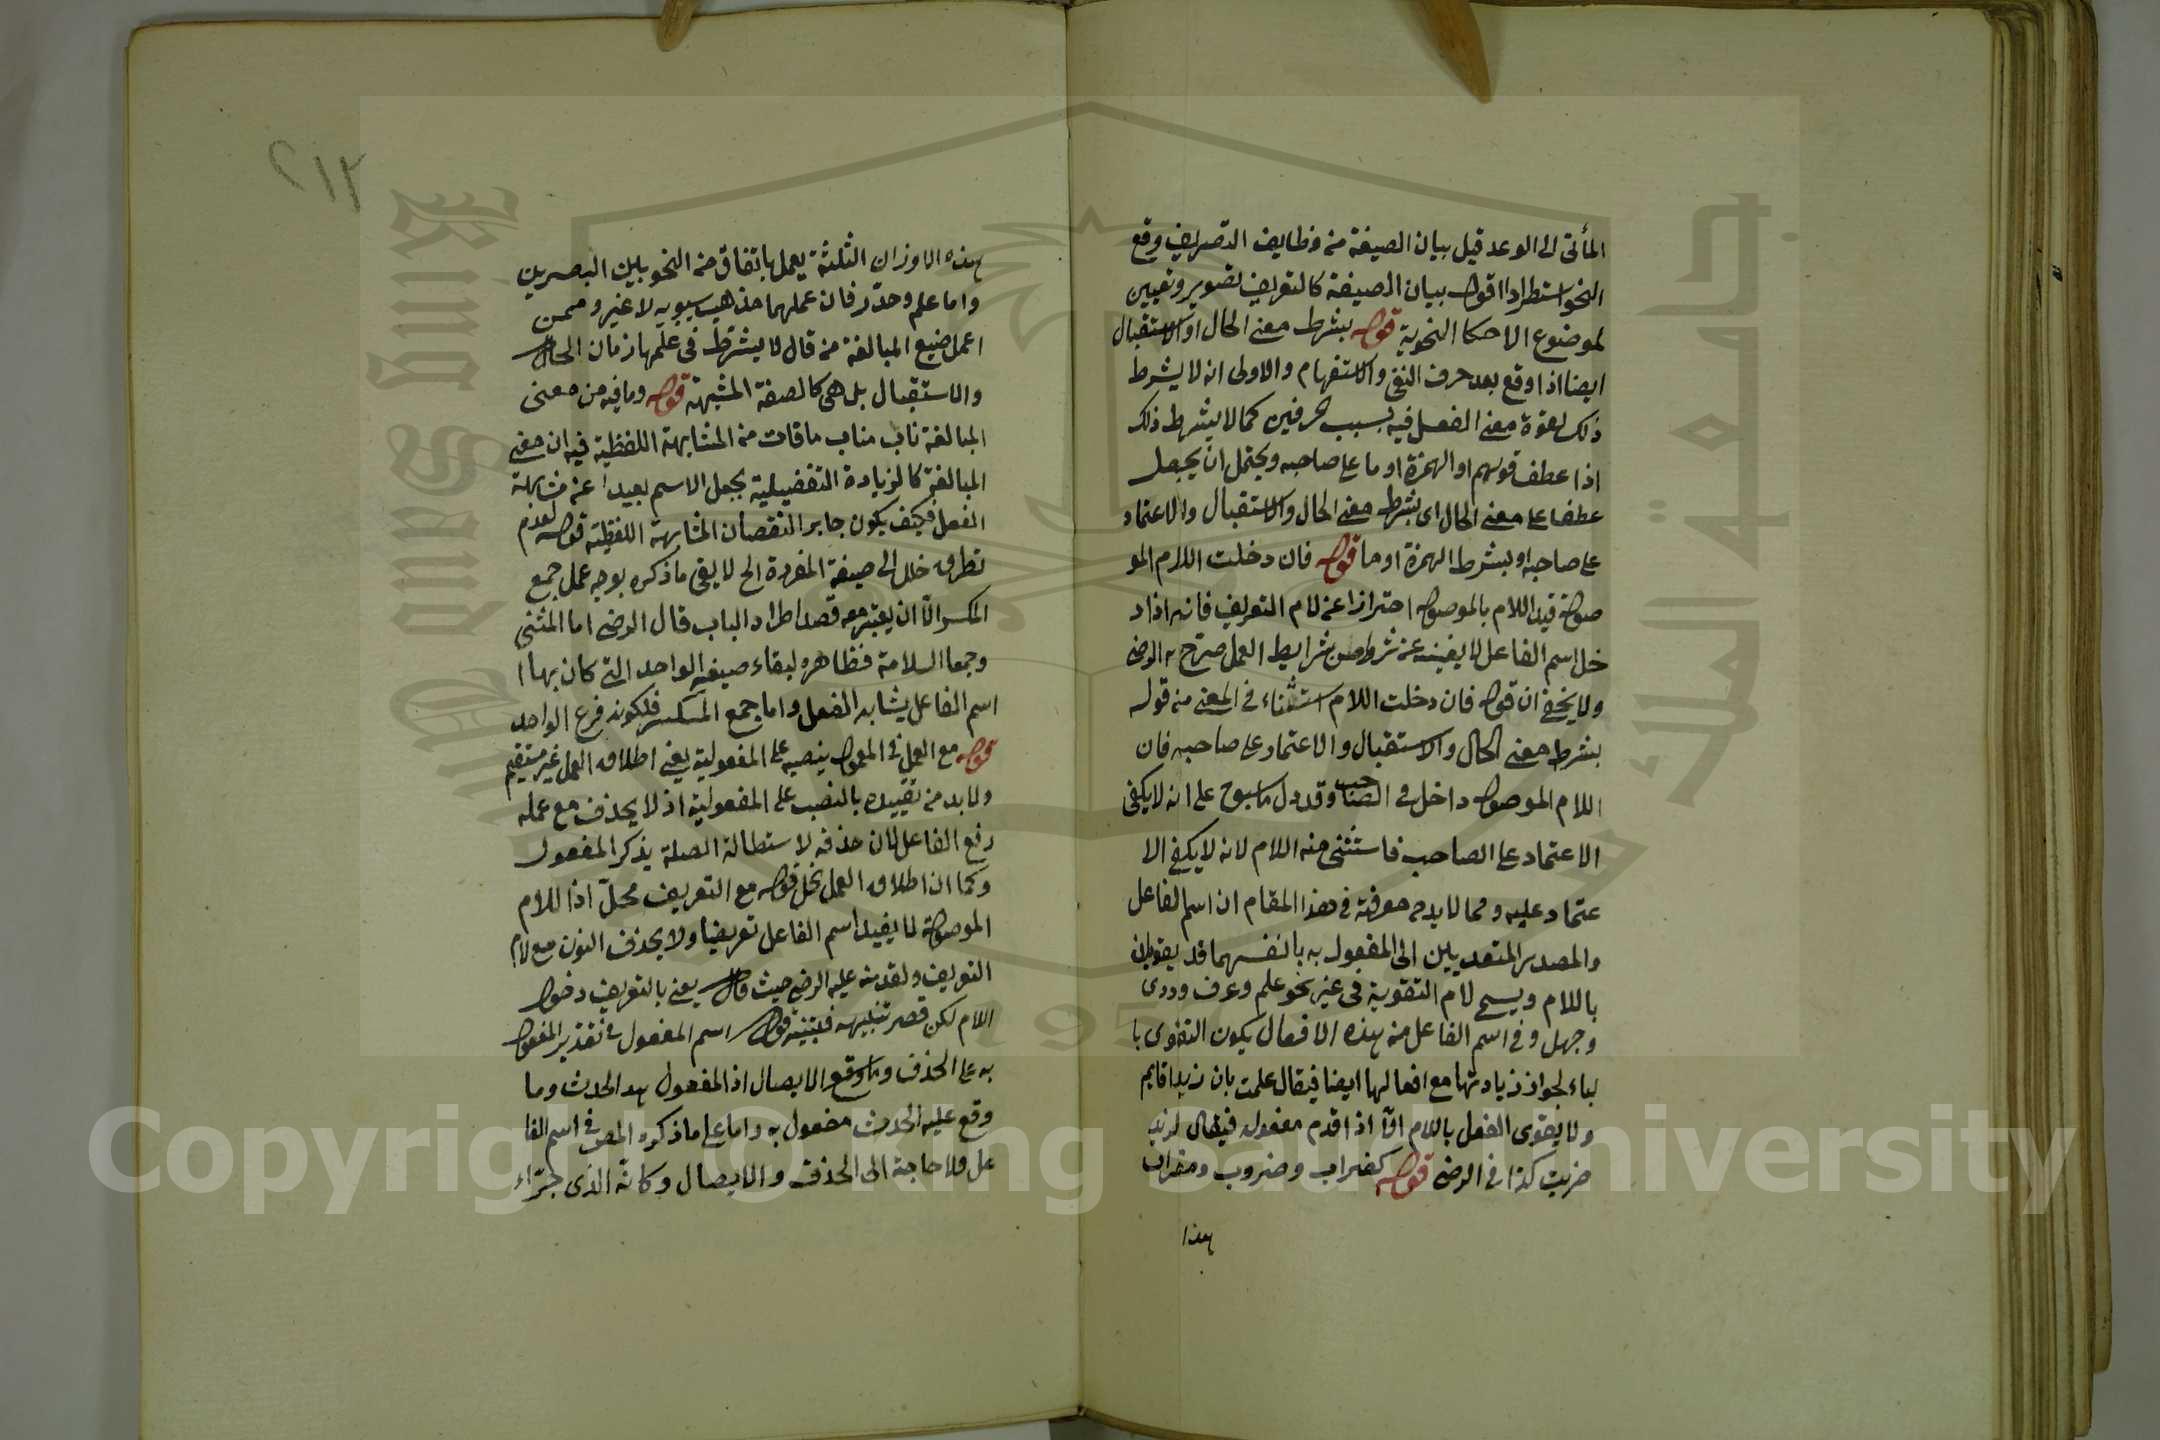 المأتى الى الوعد قيل بيان الصيغة من وظايف التصريف وقع
النحو استطرادا اقول بيان الصيغة كالتعريف تصوير وتعيين
لموضوع الاحكا النحوية قوله بشرط معنى الحال او الاستقبال
ايضا اذا وقع بعد حرف النفى والاستفهام والاولى انه لا يشرط
ذلك لقوة معنى الفعل فيه بسبب حرفين كما لا يشرط ذلك
اذا عطف قولهم او الهمزة او ما على صاحبه ويحتمل ان يجعل
عطفا على معنى الحال اى بشرط معنى الحال والاستقبال والاعتماد
على صاحبه او بشرط الهمزة او ما قوله فان دخلت اللام المو
صولة قيد اللام بالموصولة احترازا عن لام التعريف فانه اذا د
خل اسم الفاعل لا يغنيه عن شرط من شرايط العمل صرح به الرضى
ولا يخفى ان قوله فان دخلت اللام استثناء فى المعنى من قوله
بشرط معنى الحال والاستقبال والاعتماد على صاحبه فان
اللام الموصولة داخل فى الصاحب وقد دل ما سبق على انه لا يكفى
الاعتماد على الصاحب فاستثنى منه اللام لانه لا يكفى الا
عتماد عليه ومما لا بد من معرفته فى هذا المقام ان اسم الفاعل
والمصدر المتعديين الى المفعول به بانفسهما قد يقويان
باللام ويسمى لام التقوية فى غير نحو علم وعرف ودرى
وجهل وفى اسم الفاعل من هذه الافعال يكون التقوى با
لباء لجواز زيادتها مع افعالها ايضا فيقال علمت بان زيدا قايم
ولا يقوى الفعل باللام الا اذا قدم مفعوله فيقال لزيد
ضربت كذا فى الرضى قوله كضراب وضروب ومضراب
هذا
٢١٢
هذه الاوزان الثلثة يعمل باتفاق من النحويين البصريين
واما علم وحذر فان عملهما مذهب سيبويه لا غير وممن
اعمل صيغ المبالغة من قال لا يشترط فى علمها زمان الحال
والاستقبال بل هى كالصفة المشبهة قوله وما فيه من معنى
المبالغة ناب مناب ما فات من المشابهة اللفظية فيه ان معنى
المبالغة كالزيادة التفضيلية يجعل الاسم بعيدا عن مشابهة
الفعل فكيف يكون جابرا لنقصان المشابهة اللفظية قوله لعدم
تطرق خلل الى صيغة المفردة الخ لا يفى ما ذكره بوجه عمل جمع
المكسر الا ان يعتبر معه قصد اطراد الباب قال الرضى اما المثنى
وجمعا السلامة فظاهره لبقاء صيغة الواحد التى كان بها ا
اسم الفاعل يشابه الفعل واما جمع المكسر فلكونه فرع الواحد
قوله مع العمل فى المعمول بنصبه على المفعولية يعنى اطلاق العمل غير مستقيم
ولا بد من تقييده بالنصب على المفعولية اذ لا يحذف مع عمله
رفع الفاعل لان حذفه لاستطالة الصلة بذكر المفعول
وكما ان اطلاق العمل يخل قوله مع التعريف محل اذ اللام
الموصولة لا يفيد اسم الفاعل تعريفا ولا يحذف النون مع لام
التعريف ولقد نبه عليه الرضى حيث قال يعنى بالتعريف دخول
اللام لكن قصر تنبيهه قوله اسم المفعول فى تقدير المفعول
به على الحذف والايصال اذ المفعول هو الحدث وما
وقع عليه الحدث مفعول به واما على ما ذكره المص فى اسم الفا
عل فلا حاجة الى الحذف والايصال وكانه الذى جراء
Copyright © King Saud University
King Saud University
جامعة الملك سعود
1957